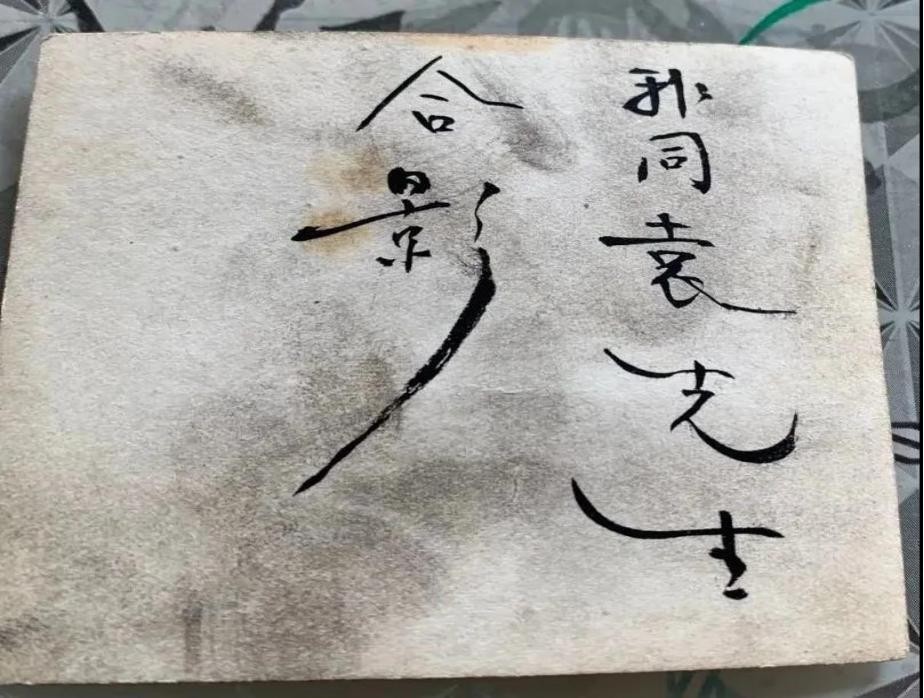 我同袁先生
合影